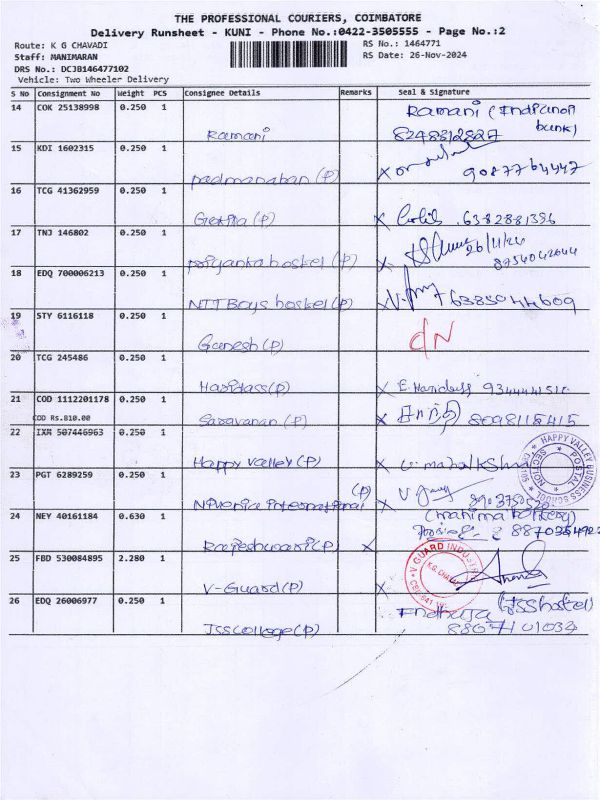 THE PROFESSIONAL COURIERS, COIMBATORE
Delivery Runsheet - KUNI - Phone No.:0422-3505555 - Page No.:2
Route: K G CHAVADI
RS No.: 1464771
Staff: MANIMARAN
RS Date: 26-Nov-2024
DRS No.: DCJB146477102
Vehicle: Two Wheeler Delivery
S No Consignment No Weight PCS Consignee Details Remarks Seal & Signature
14 COK 25138998 0.250 1 Ramani Ramani (Indianoil
bank)
8248312827
15 KDI 1602315 0.250 1 padmanaban (P) 9087764447
16 TCG 41362959 0.250 1 (P) 6382881396
17 TNJ 146802 0.250 1 priyanka hostel (P) 26/11/24
8754042644
18 EDQ 700006213 0.250 1 NTT Boys hostel (P) 6385044609
19 STY 6116118 0.250 1 Ganesh (P)
20 TCG 245486 0.250 1 Haridass (P)
21 COD 1112201178 0.250 1 Saravanan (P) 8098115415
COD Rs.810.00
22 IXM 507446963 0.250 1 Happy valley (P)
HAPPY VALLEY BUSINESS SCHOOL
23 PGT 6289259 0.250 1 international (P)
24 NEY 40161184 0.630 1 Rajeshwari (P)
25 FBD 530084895 2.280 1 V-Guard (P)
V GUARD INDUSTR
K.G. CHAVADI
26 EDQ 26006977 0.250 1 JSS college (P) Endhuja (JSS hostel)
8807101034